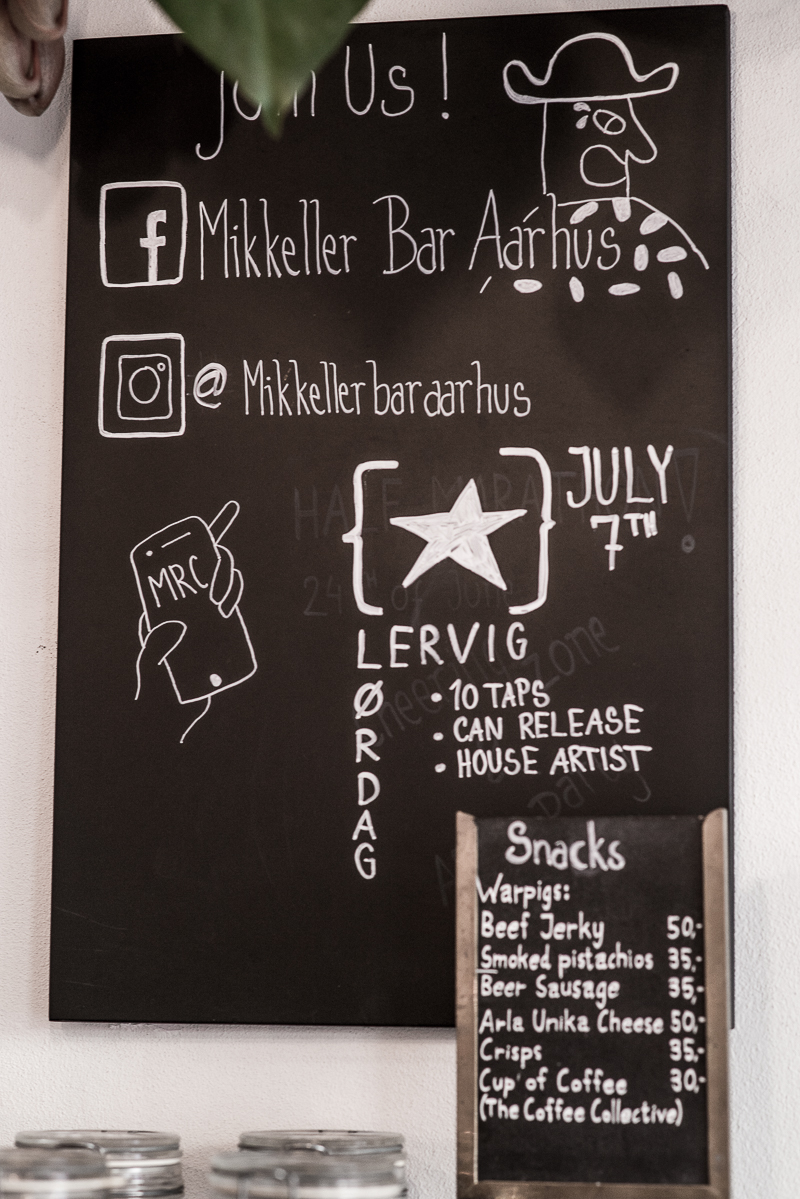 Join Us !
f Mikkeller Bar Aarhus
@ Mikkellerbaraarhus
JULY
7TH
MRC
LERVIG
LØRDAG
• 10 TAPS
• CAN RELEASE
• HOUSE ARTIST
Snacks
Warpigs:
Beef Jerky 50,-
Smoked pistachios 35,-
Beer Sausage 35,-
Arla Unika Cheese 50,-
Crisps 35,-
Cup of Coffee 30,-
(The Coffee Collective)